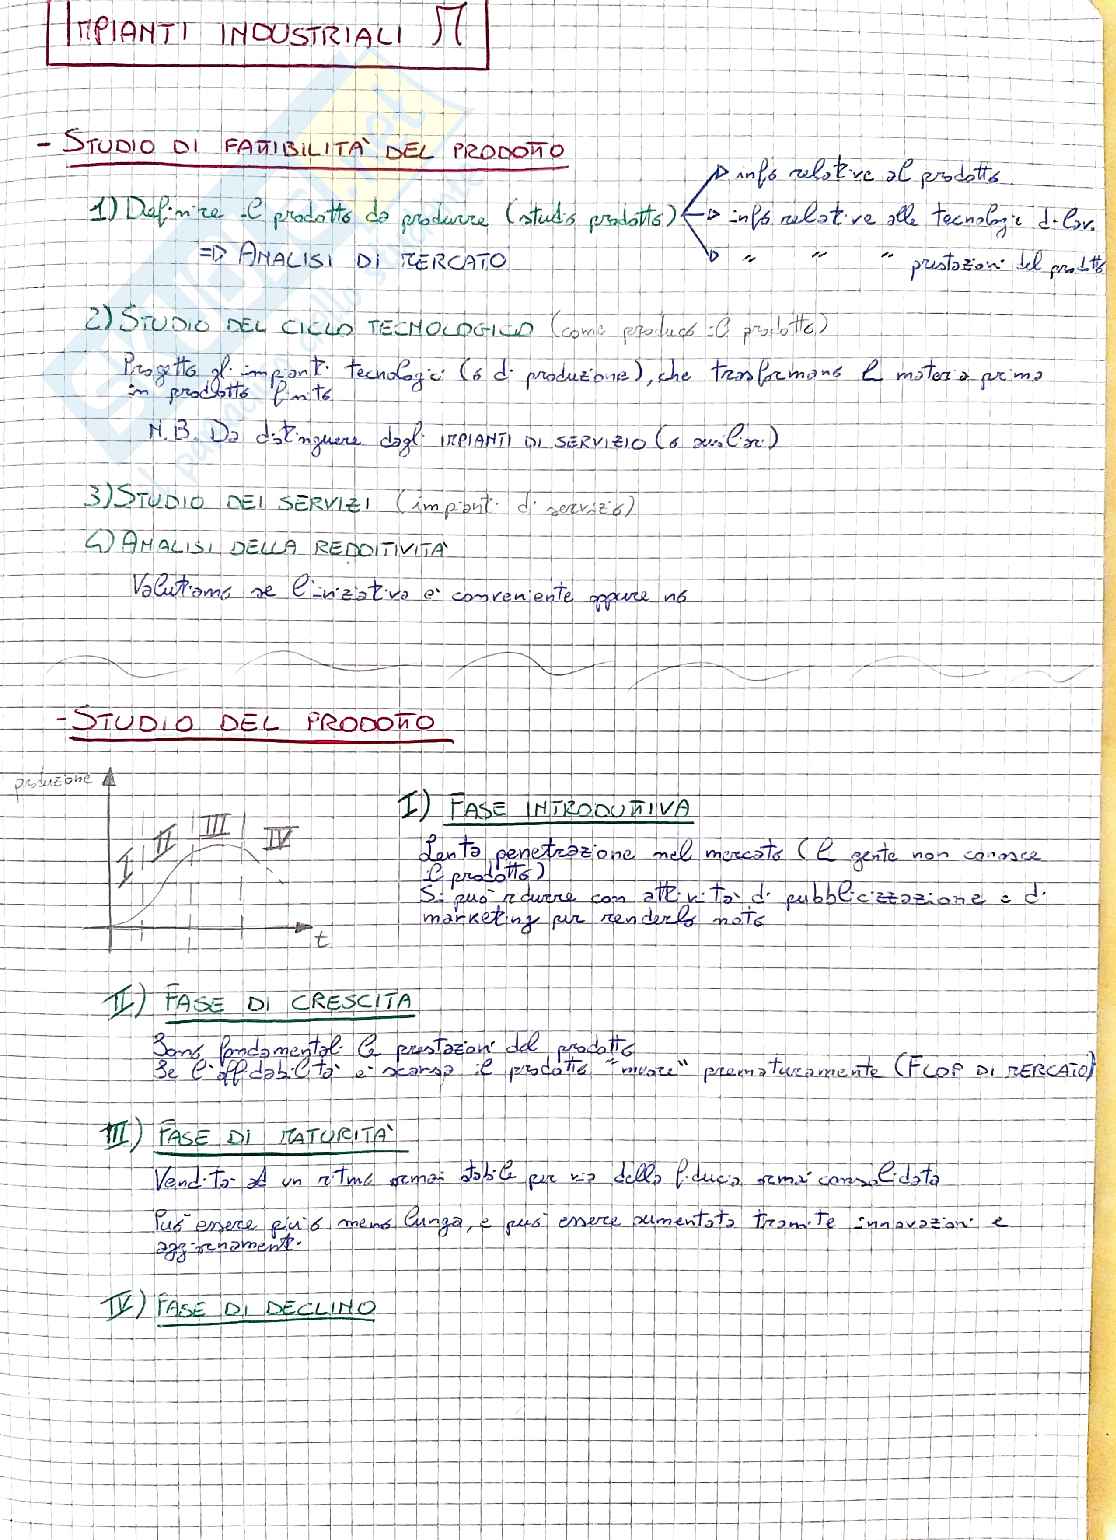 IMPIANTI INDUSTRIALI M
- STUDIO DI FATTIBILITA' DEL PRODOTTO
1) Definire il prodotto da produrre (studio prodotto)
info relative al prodotto
info relative alle tecnologie di lav.
" " " prestazioni del prodotto
=> ANALISI DI MERCATO
2) STUDIO DEL CICLO TECNOLOGICO (come produco il prodotto)
Progetto gli impianti tecnologici (o di produzione), che trasformano la materia prima
in prodotto finito
N.B. Da distinguere dagli IMPIANTI DI SERVIZIO (o ausiliari)
3) STUDIO DEI SERVIZI (impianti di servizio)
4) ANALISI DELLA REDDITIVITA'
Valutiamo se l'iniziativa è conveniente oppure no
- STUDIO DEL PRODOTTO
produzione
I II III IV
t
I) FASE INTRODUTTIVA
Lenta penetrazione nel mercato (la gente non conosce
il prodotto)
Si può ridurre con attività di pubblicizzazione e di
marketing per renderlo noto
II) FASE DI CRESCITA
Sono fondamentali le prestazioni del prodotto
Se l'affidabilità è scarsa il prodotto "muore" prematuramente (FLOP DI MERCATO)
III) FASE DI MATURITA'
Vendita ad un ritmo ormai stabile per via della fiducia ormai consolidata
Può essere più o meno lunga, e può essere aumentata tramite innovazioni e
aggiornamenti.
IV) FASE DI DECLINO